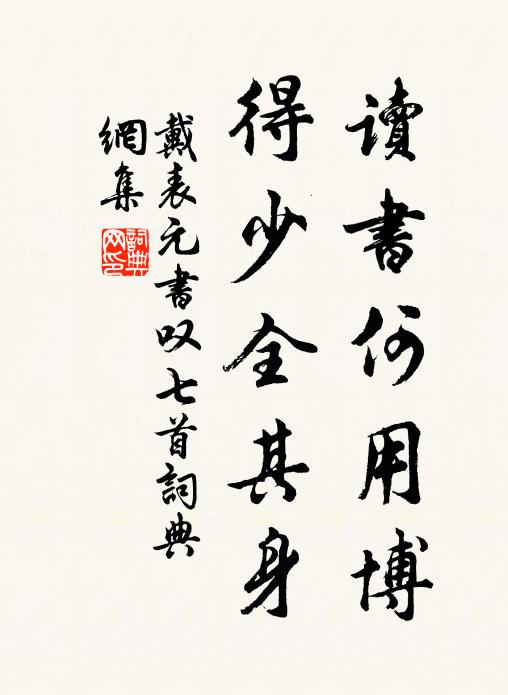 讀書何用博
得少全其身
戴表元書叹七首詞典
網集
詞典網印